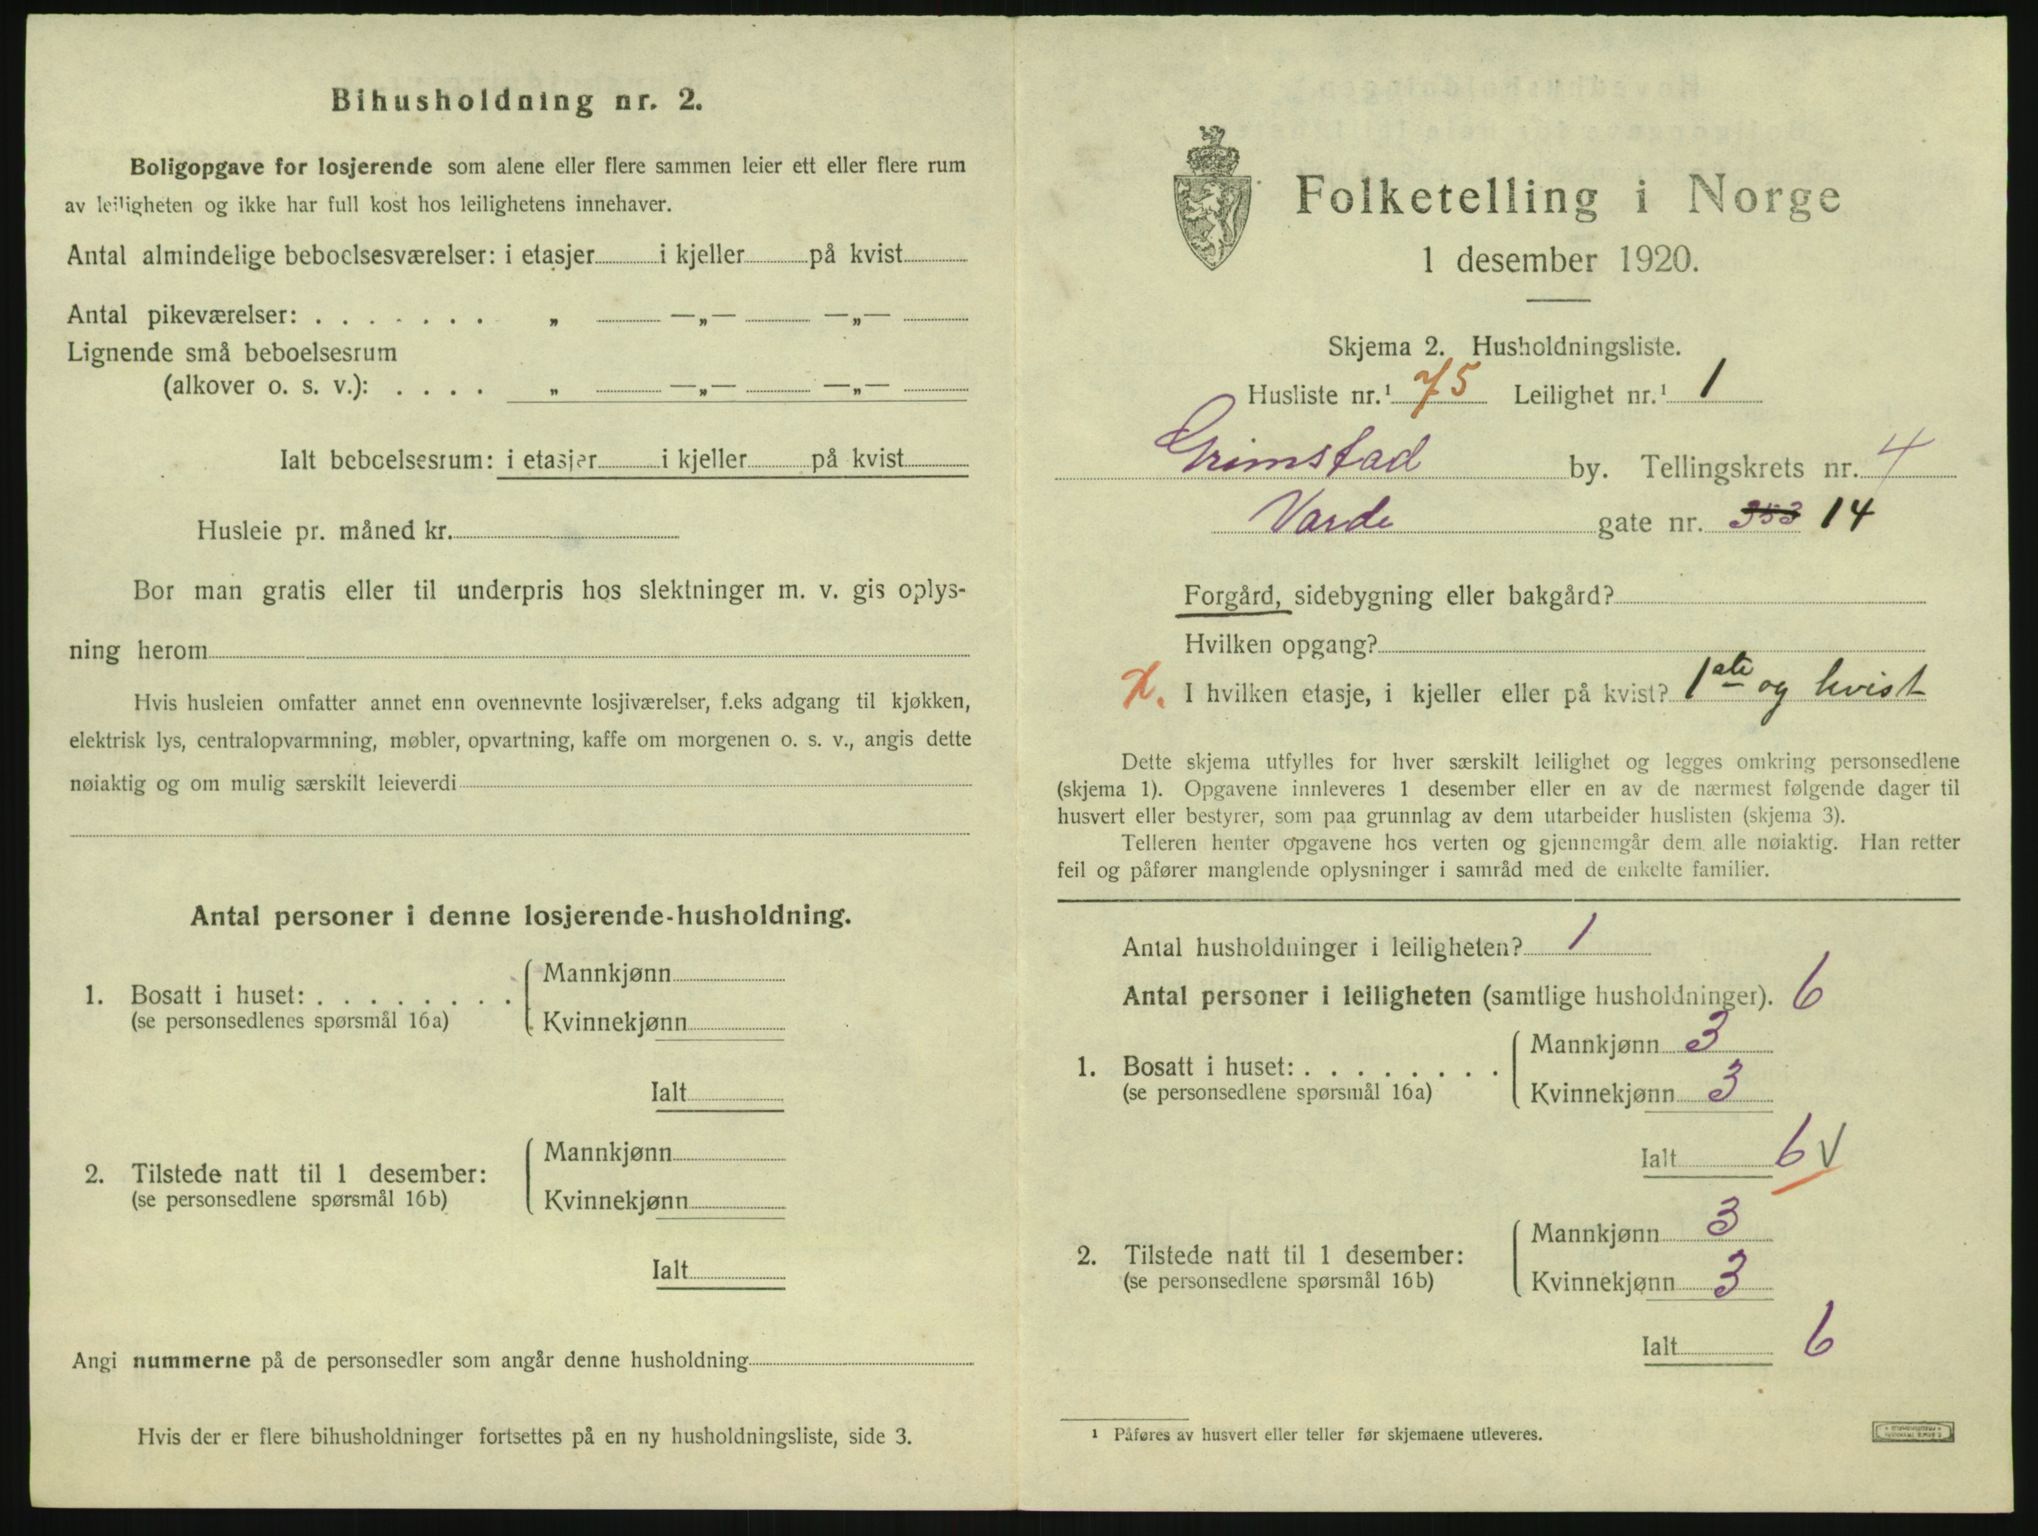 Bihusholdning nr. 2.
Boligopgave for losjerende som alene eller flere sammen leier ett eller flere rum
av leiligheten og ikke har full kost hos leilighetens innehaver.
Antal almindelige beboelsesværelser: i etasjer i kjeller på kvist
Antal pikeværelser: . . . . . . . „ —„— —„—
Lignende små beboelsesrum
(alkover o. s. v.): . . . . „ —„— —„—
Ialt beboelsesrum: i etasjer i kjeller på kvist
Husleie pr. måned kr.
Bor man gratis eller til underpris hos slektninger m. v. gis oplys-
ning herom
Hvis husleien omfatter annet enn ovennevnte losjiværelser, f.eks adgang til kjøkken,
elektrisk lys, centralopvarmning, møbler, opvartning, kaffe om morgenen o. s. v., angis dette
nøiaktig og om mulig særskilt leieverdi
Antal personer i denne losjerende-husholdning.
1. Bosatt i huset: . . . . . . . .
(se personsedlenes spørsmål 16a)
Mannkjønn
Kvinnekjønn
Ialt
2. Tilstede natt til 1 desember:
(se personsedlene spørsmål 16b)
Mannkjønn
Kvinnekjønn
Ialt
Angi nummerne på de personsedler som angår denne husholdning
Hvis der er flere bihusholdninger fortsettes på en ny husholdningsliste, side 3.
Folketelling i Norge
1 desember 1920.
Skjema 2. Husholdningsliste.
Husliste nr.¹ 75 Leilighet nr.¹ 1
Grimstad by. Tellingskrets nr. 4
Varde gate nr. 353 14
Forgård, sidebygning eller bakgård?
Hvilken opgang?
X. I hvilken etasje, i kjeller eller på kvist? 1ste og kvist
Dette skjema utfylles for hver særskilt leilighet og legges omkring personsedlene
(skjema 1). Opgavene innleveres 1 desember eller en av de nærmest følgende dager til
husvert eller bestyrer, som paa grunnlag av dem utarbeider huslisten (skjema 3).
Telleren henter opgavene hos verten og gjennemgår dem alle nøiaktig. Han retter
feil og påfører manglende oplysninger i samråd med de enkelte familier.
Antal husholdninger i leiligheten? 1
Antal personer i leiligheten (samtlige husholdninger). 6
1. Bosatt i huset: . . . . . . . .
(se personsedlene spørsmål 16a)
Mannkjønn 3
Kvinnekjønn 3
Ialt 6 V
2. Tilstede natt til 1 desember:
(se personsedlene spørsmål 16b)
Mannkjønn 3
Kvinnekjønn 3
Ialt 6
¹ Påføres av husvert eller teller før skjemaene utleveres.